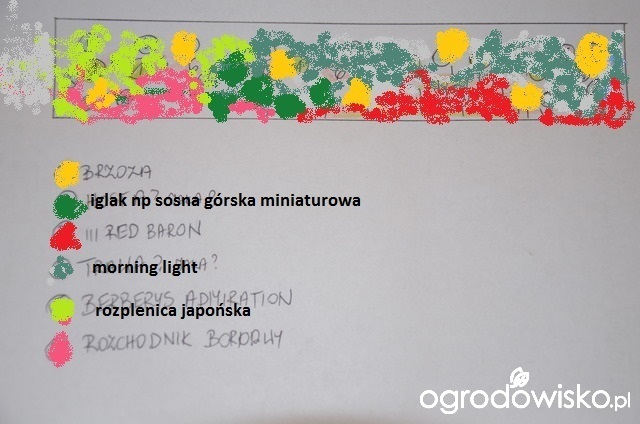 BRZOZA
iglak np sosna górska miniaturowa
III RED BARON
morning light
BERBERYS ADMIRATION
rozplenica japońska
ROZCHODNIK BORDOWY
ogrodowisko.pl